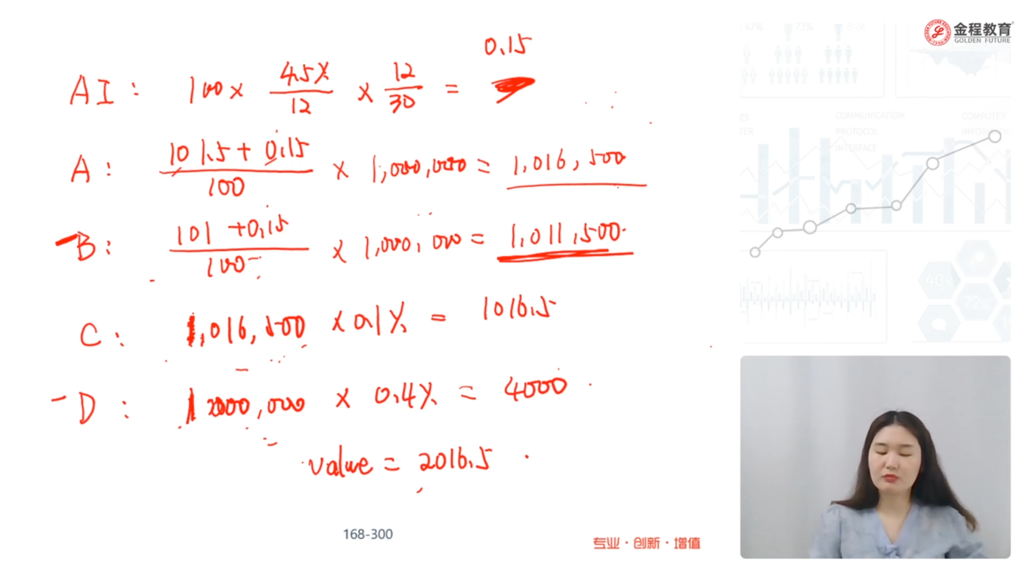 金程教育
GOLDEN FUTURE
0.15
AI: 100 × 4.5%/12 × 12/30 =
A: (101.5 + 0.15)/100 × 1,000,000 = 1,016,500
B: (101 + 0.15)/100 × 1,000,000 = 1,011,500
C: 1,016,500 × 0.1% = 1016.5
D: 1000,000 × 0.4% = 4000
value = 2016.5
168-300
专业·创新·增值
COMMUNICATION
PROTOCOL
INTERFACE